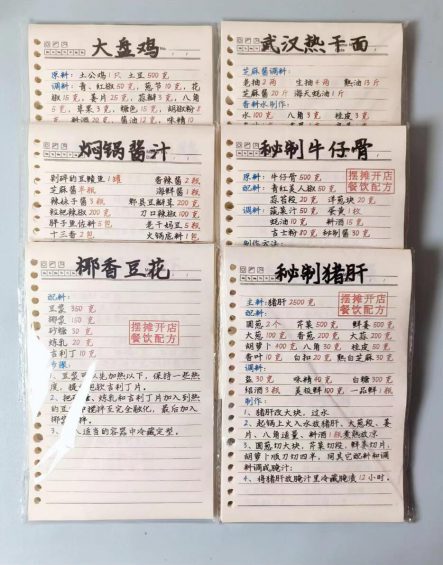 大盘鸡
原料：土公鸡1只 土豆500克
调料：青、红椒50克，葱节10克，花
椒15克，姜片25克，蒜瓣3克，八角
5克，草果3克，糖色15克，胡椒粉8
克，料酒20克，酱油12克，味精10
武汉热干面
芝麻酱调料：
老抽2两 生抽4两 熟油13斤
芝麻酱20斤 海天蚝油1斤
香料水制作：
水100克 八角3克 桂皮3克
焖锅酱汁
剁碎的豆鲮鱼1罐 香辣酱2瓶
芝麻酱半瓶 海鲜酱1瓶
辣妹子酱3瓶 郫县豆瓣酱200克
糍粑辣椒200克 刀口辣椒100克
胖子鱼佐料5包 老干妈豆5瓶
十三香2包 火锅底料1包
秘制牛仔骨
原料：牛仔骨500克
配料：青红美人椒50克
蒜苔段20克 洋葱块20克
调料：蔬菜汁50克 蛋黄1枚
蚝油10克 料酒15克
吉士粉50克 秘制酱30克
制作方法：
摆摊开店
餐饮配方
椰香豆花
配料：
豆浆350克
椰浆150克
砂糖30克
炼乳20克
吉利丁10克
步骤：
1、豆浆可以先加热以下，保持一些热
度，提前泡软吉利丁片。
2、把砂糖、炼乳和吉利丁片加入到热
的豆浆中搅拌至完全融化，最后加入
椰浆搅拌。
3、倒入适当的容器中冷藏定型。
摆摊开店
餐饮配方
秘制猪肝
主料：猪肝2500克
配料：
圆葱2个 芹菜500克 鲜姜500克
大葱100克 香葱200克 大蒜200克
胡萝卜100克 八角30克 桂皮50克
香叶10克 白扣20克 熟白芝麻30克
调料：
盐30克 味精40克 白糖300克
绍酒3瓶 美极鲜100克 一品鲜1瓶
制作：
1、猪肝改大块，过水
2、起锅上火入水放猪肝、大葱段、姜
片、八角适量、料酒1瓶煮熟放凉
3、圆葱切大块，芹菜切段，鲜姜切片，
胡萝卜顺刀切四半，同其它配料和调
料调成腌汁；
4、将猪肝放腌汁里冷藏腌渍12小时。
摆摊开店
餐饮配方